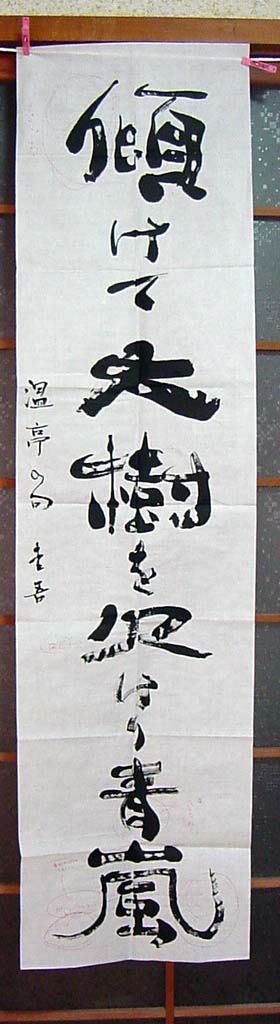 傾けて大樹を り青嵐
温亭の句 圭吾